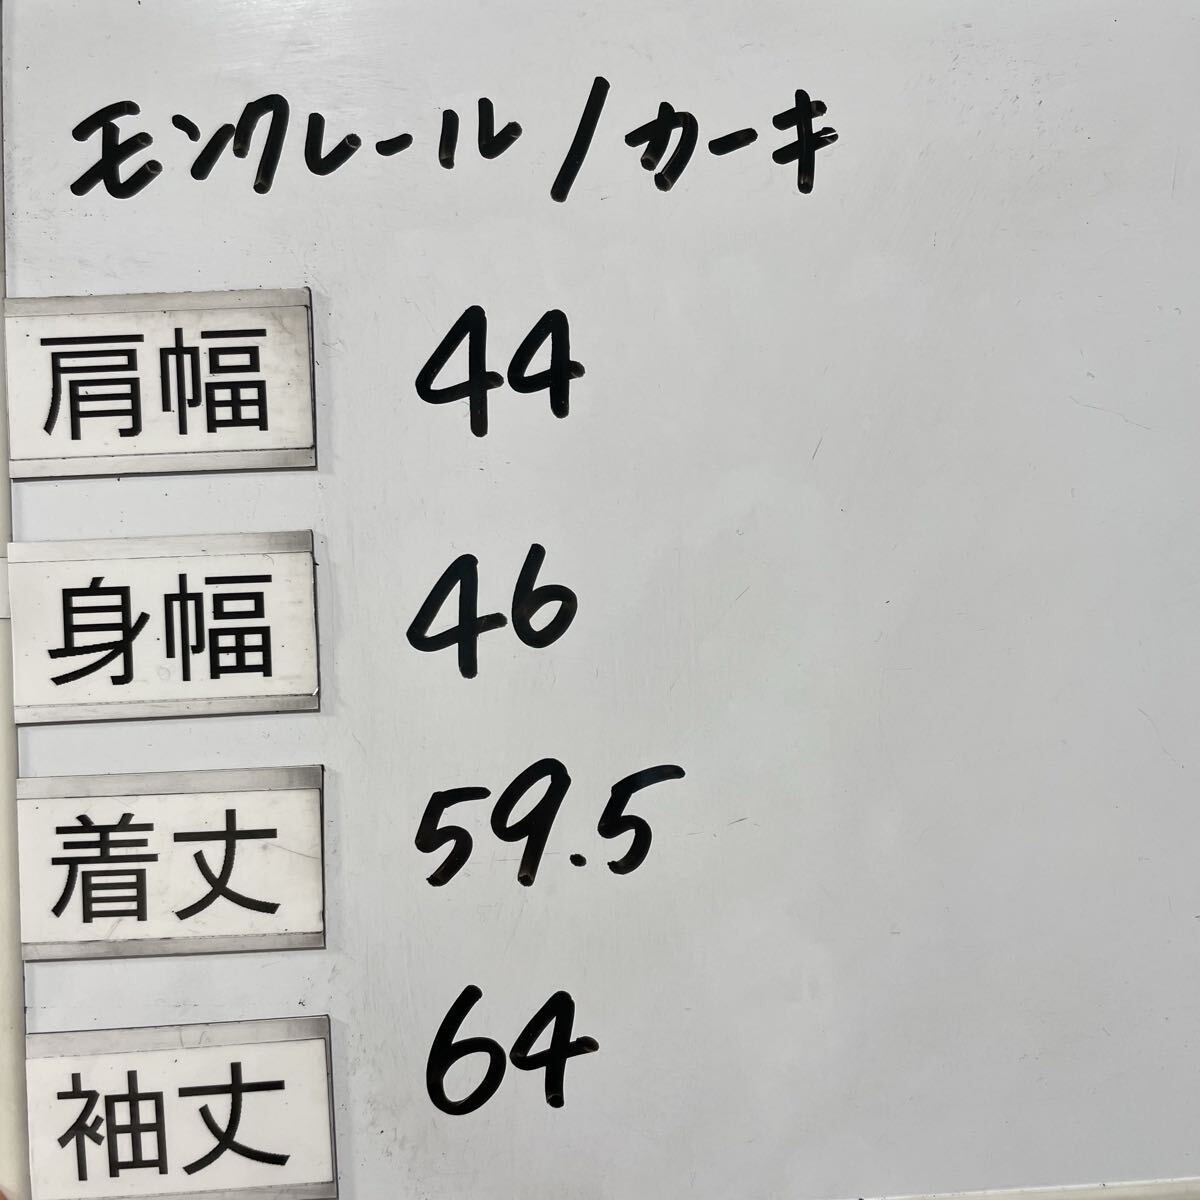 モンクレール/カーキ
肩幅 44
身幅 46
着丈 59.5
袖丈 64